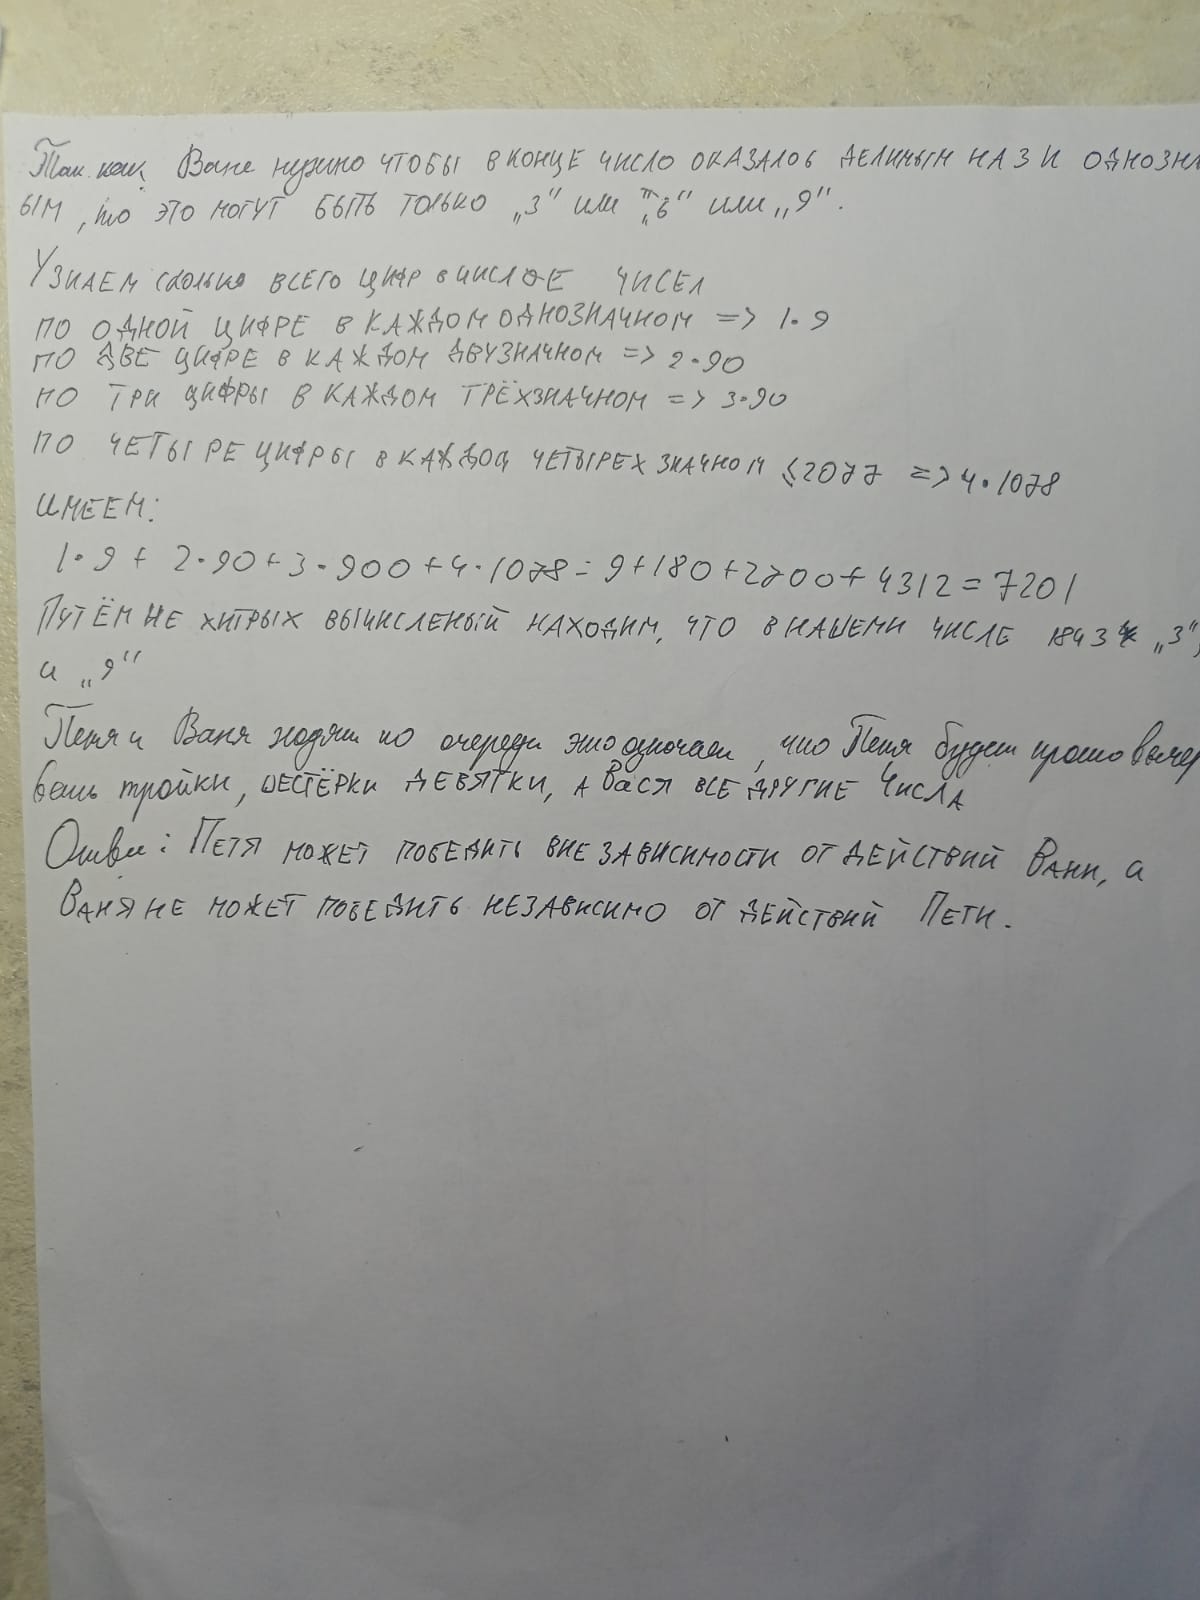 Так как Ване нужно чтобы в конце число оказалоь делимым на 3 и однозн
ым, то это могут быть только „3“ или „6“ или „9“.
Узнаем сколько всего цифр в числое чисел
по одной цифре в каждом однозначном => 1·9
по две цифре в каждом двузначном => 2·90
по три цифры в каждом трёхзначном => 3·90
по четыре цифры в каждом четырехзначном ≤2077 => 4·1078
имеем:
1·9 + 2·90 + 3·900 + 4·1078 = 9+180+2700+4312 = 7201
Путём не хитрых вычисленый находим, что в нашеми числе 1843 „3“,
и „9“
Петя и Ваня ходят по очереди это означает, что Петя будет просто вычер
вать тройки, шестёрки девятки, а Вася все другие числа
Ответ: Петя может победить вне зависимости от действий Вани, а
Ваня не может победить независимо от действий Пети.